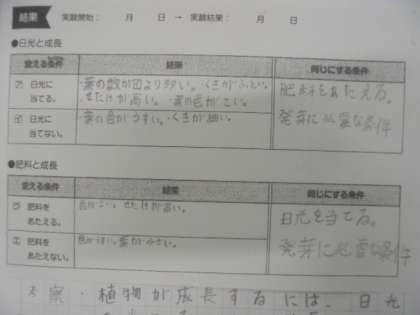 結果 実験開始： 月 日 → 実験結果： 月 日
●日光と成長
変える条件 結果 同じにする条件
㋐ 日光に当てる。
・葉の数が㋑より多い。・くきがふとい。
・せたけが高い。 葉の色がこい。
肥料をあたえる。
発芽に必要な条件
㋑ 日光に当てない。
・葉の色がうすい。・くきが細い。
●肥料と成長
変える条件 結果 同じにする条件
肥料をあたえる。
色がこい。せたけが高い。
日光を当てる。
発芽に必要な条件
肥料をあたえない。
色がうすい。葉が小さい。
考察・植物が成長するには、日光